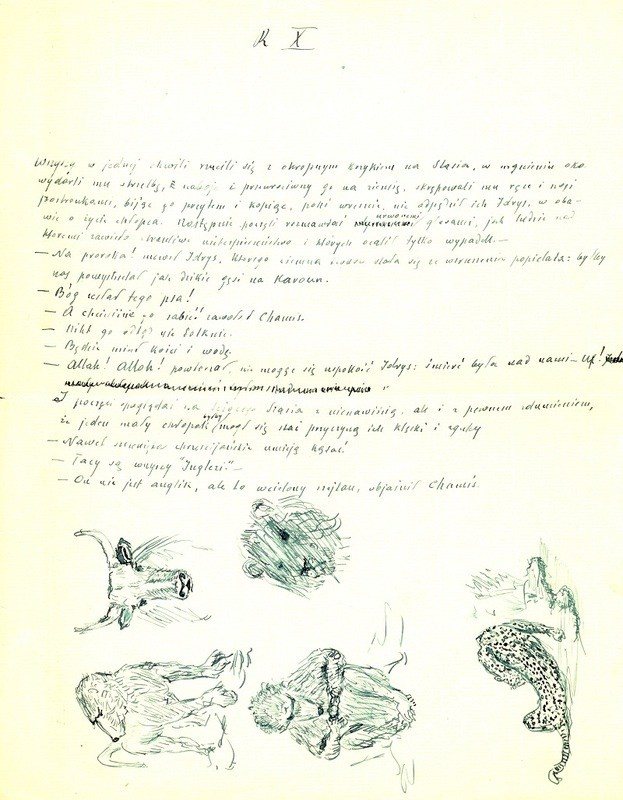 R X
Wszyscy w jednej chwili rzucili się z okropnym krzykiem na Stasia, w mgnieniu oka
wydarli mu strzelbę, nabój i przewróciwszy go na ziemię, skrępowali mu ręce i nogi
postronkami, bijąc go przytem i kopiąc, póki wreszcie nie odpędził ich Idrys, w oba-
wie o życie chłopca. Następnie poczęli rozmawiać urwanemi głosami, jak ludzie nad
któremi zawisło straszliwe niebezpieczeństwo i których ocalił tylko wypadek. —
— Na proroka! mówił Idrys, którego ciemna stała się ze wzruszenia popielata: byłby
nas powystrzelał jak dzikie gęsi na Karoun.
— Bóg zesłał tego psa!
— A chcieliście go zabić zawołał Chamis.
— Nikt go odtąd nie dotknie.
— Będzie miał kości i wodę.
— Allah! Allah! powtarzał, nie mogąc się uspokoić Idrys: śmierć była nad nami — Uf!
I poczęli spoglądać na Stasia z nienawiścią, ale i z pewnem zdumieniem,
że jeden mały chłopak mógł się stać przyczyną ich klęski i zguby
— Nawet szczenięta chrześcijańskie umieją kąsać
— Tacy są wszyscy "Inglezi" —
— On nie jest anglik, ale to wcielony szejtan, objaśnił Chamis